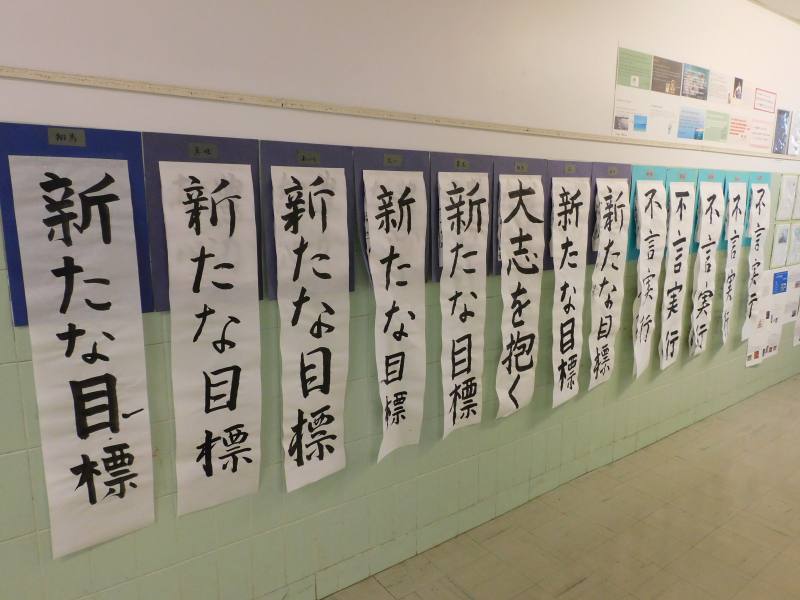 新たな目標
新たな目標
新たな目標
新たな目標
新たな目標
大志を抱く
新たな目標
新たな目標
不言実行
不言実行
不言実行
不言実行
不言実行